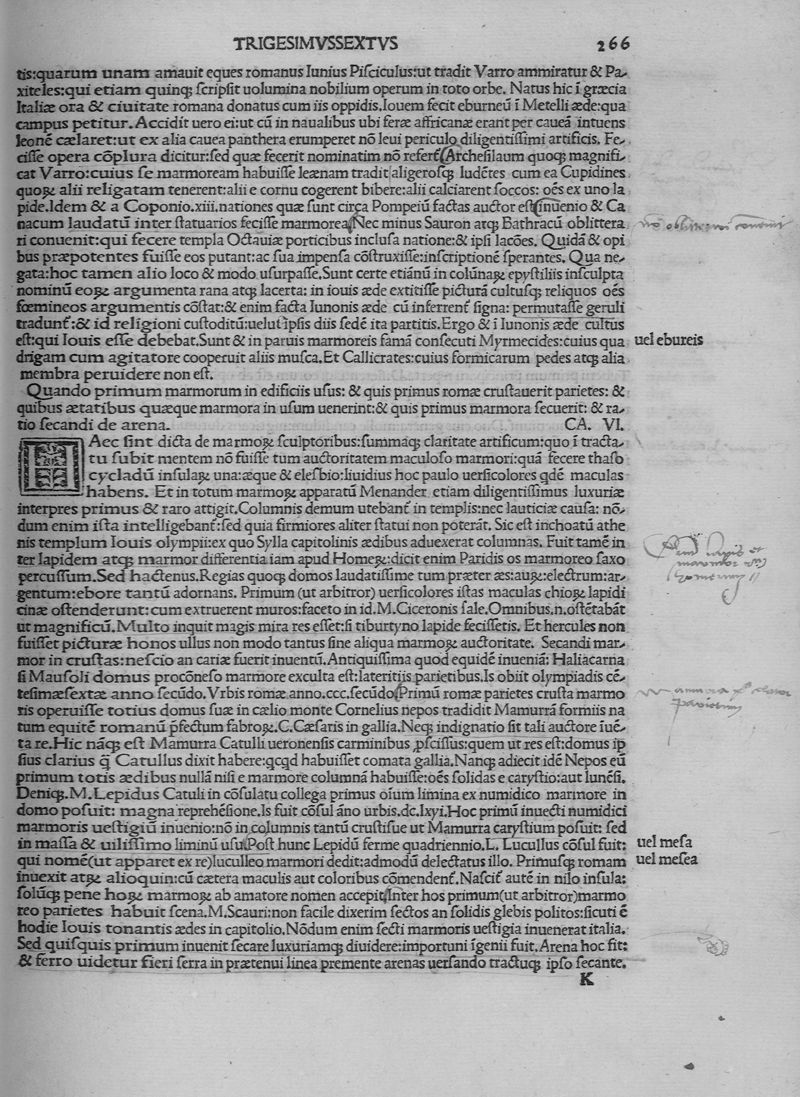 TRIGESIMVSSEXTVS 266
tis:quarum unam amauit eques romanus Iunius Piſciculus:ut tradit Varro ammiratur & Pa-
xiteles:qui etiam quinqꝫ ſcripſit uolumina nobilium operum in toto orbe. Natus hic ī græcia
Italiæ ora & ciuitate romana donatus cum iis oppidis.Iouem fecit eburneū ī Metelli æde:qua
campus petitur. Accidit uero ei:ut cū in naualibus ubi feræ affricanæ erant per caueā intuens
leonē cælaret:ut ex alia cauea panthera erumperet nō leui periculo diligentiſſimi artificis. Fe-
ciſſe opera cōplura dicitur:ſed quæ fecerit nominatim nō refert̄.Archeſilaum quoqꝫ magnifi-
cat Varro:cuius ſe marmoream habuiſſe leænam tradit aligeroſqꝫ ludētes cum ea Cupidines
quoꝝ alii religatam tenerent:alii e cornu cogerent bibere:alii calciarent ſoccos: oēs ex uno la
pide.Idem & a Coponio.xiii.nationes quæ ſunt circa Pompeiū factas auctor eſt.inuenio & Ca
nacum laudatū inter ſtatuarios feciſſe marmorea.Nec minus Sauron atqꝫ Bathracū oblittera
ri conuenit:qui fecere templa Octauiæ porticibus incluſa natione:& ipſi lacōes. Quidā & opi
bus præpotentes fuiſſe eos putant:ac ſua impenſa cōſtruxiſſe:inſcriptionē ſperantes. Qua ne-
gata:hoc tamen alio loco & modo uſurpaſſe.Sunt certe etiānū in colūnaꝝ epyſtiliis inſculpta
nominū eoꝝ argumenta rana atqꝫ lacerta: in iouis æde extitiſſe picturā cultuſqꝫ reliquos oēs
fœmineos argumentis cōſtat:& enim facta Iunonis æde cū inferrent̄ ſigna: permutaſſe geruli
tradunt̄:& id religioni cuſtoditū:uelut ipſis diis ſedē ita partitis.Ergo & ī Iunonis æde cultus
eſt:qui Iouis eſſe debebat.Sunt & in paruis marmoreis famā conſecuti Myrmecides:cuius qua
uel ebureis
drigam cum agitatore cooperuit aliis muſca.Et Callicrates:cuius formicarum pedes atqꝫ alia
membra peruidere non eſt.
Quando primum marmorum in edificiis uſus: & quis primus romæ cruſtauerit parietes: &
quibus ætatibus quæque marmora in uſum uenerint:& quis primus marmora ſecuerit: & ra-
tio ſecandi de arena. CA. VI.
HAec ſint dicta de marmoꝝ ſculptoribus:ſummaqꝫ claritate artificum:quo ī tracta-
tu ſubit mentem nō fuiſſe tum auctoritatem maculoſo marmori:quā fecere thaſo
cycladū inſulaꝝ una:æque & eleſbio:liuidius hoc paulo uerſicolores qdē maculas
habens. Et in totum marmoꝝ apparatū Menander etiam diligentiſſimus luxuriæ
interpres primus & raro attigit.Columnis demum utebant̄ in templis:nec lauticiæ cauſa: nō-
dum enim iſta intelligebant̄:ſed quia firmiores aliter ſtatui non poterāt. Sic eſt inchoatū athe
nis templum Iouis olympii:ex quo Sylla capitolinis ædibus aduexerat columnas. Fuit tamē in
ter lapidem atqꝫ marmor differentia iam apud Homeꝝ:dicit enim Paridis os marmoreo ſaxo
percuſſum.Sed hactenus.Regias quoqꝫ domos laudatiſſime tum præter æs:auꝝ:electrum:ar-
gentum:ebore tantū adornans. Primum (ut arbitror) uerſicolores iſtas maculas chioꝝ lapidi
cinæ oſtenderunt:cum extruerent muros:faceto in id.M.Ciceronis ſale.Omnibus.n.oſtētabāt
ut magnificū.Multo inquit magis mira res eſſet:ſi tiburtyno lapide feciſſetis. Et hercules non
fuiſſet picturæ honos ullus non modo tantus ſine aliqua marmoꝝ auctoritate. Secandi mar-
mor in cruſtas:neſcio an cariæ fuerit inuentū.Antiquiſſima quod equidē inueniā: Haliacarna
ſi Mauſoli domus procōneſo marmore exculta eſt:lateritiis parietibus.Is obiit olympiadis cē-
teſimæſextæ anno ſecūdo.Vrbis romæ.anno.ccc.ſecūdo.Primū romæ parietes cruſta marmo
ris operuiſſe totius domus ſuæ in cælio monte Cornelius nepos tradidit Mamurrā formiis na
tum equitē romanū p̄fectum fabroꝝ.C.Cæſaris in gallia.Neqꝫ indignatio ſit tali auctore īuē-
ta re.Hic nāqꝫ eſt Mamurra Catulli ueronenſis carminibus ꝓſciſſus:quem ut res eſt:domus ip
ſius clarius q̄ Catullus dixit habere:qcqd habuiſſet comata gallia.Nanqꝫ adiecit idē Nepos eū
primum totis ædibus nullā niſi e marmore columnā habuiſſe:oēs ſolidas e caryſtio:aut lunēſi.
Deniqꝫ.M.Lepidus Catuli in cōſulatu collega primus oīum limina ex numidico marmore in
domo poſuit: magna reprehēſione.Is fuit cōſul āno urbis.dc.lxyi.Hoc primū inuecti numidici
marmoris ueſtigiū inuenio:nō in columnis tantū cruſtiſue ut Mamurra caryſtium poſuit: ſed
in maſſa & uiliſſimo liminū uſu.Poſt hunc Lepidū ferme quadriennio.L. Lucullus cōſul fuit:
uel meſa
qui nomē(ut apparet ex re)luculleo marmori dedit:admodū delectatus illo. Primuſqꝫ romam
uel meſea
inuexit atqꝫ alioquin:cū cætera maculis aut coloribus cōmendent̄.Naſcit̄ autē in nilo inſula:
ſolūqꝫ pene hoꝝ marmoꝝ ab amatore nomen accepit.Inter hos primum(ut arbitror)marmo
reo parietes habuit ſcena.M.Scauri:non facile dixerim ſectos an ſolidis glebis politos:ſicuti ē
hodie Iouis tonantis ædes in capitolio.Nōdum enim ſecti marmoris ueſtigia inuenerat italia.
Sed quiſquis primum inuenit ſecare luxuriamqꝫ diuidere:importuni īgenii fuit.Arena hoc fit:
& ferro uidetur fieri ſerra in prætenui linea premente arenas uerſando tractuqꝫ ipſo ſecante.
K